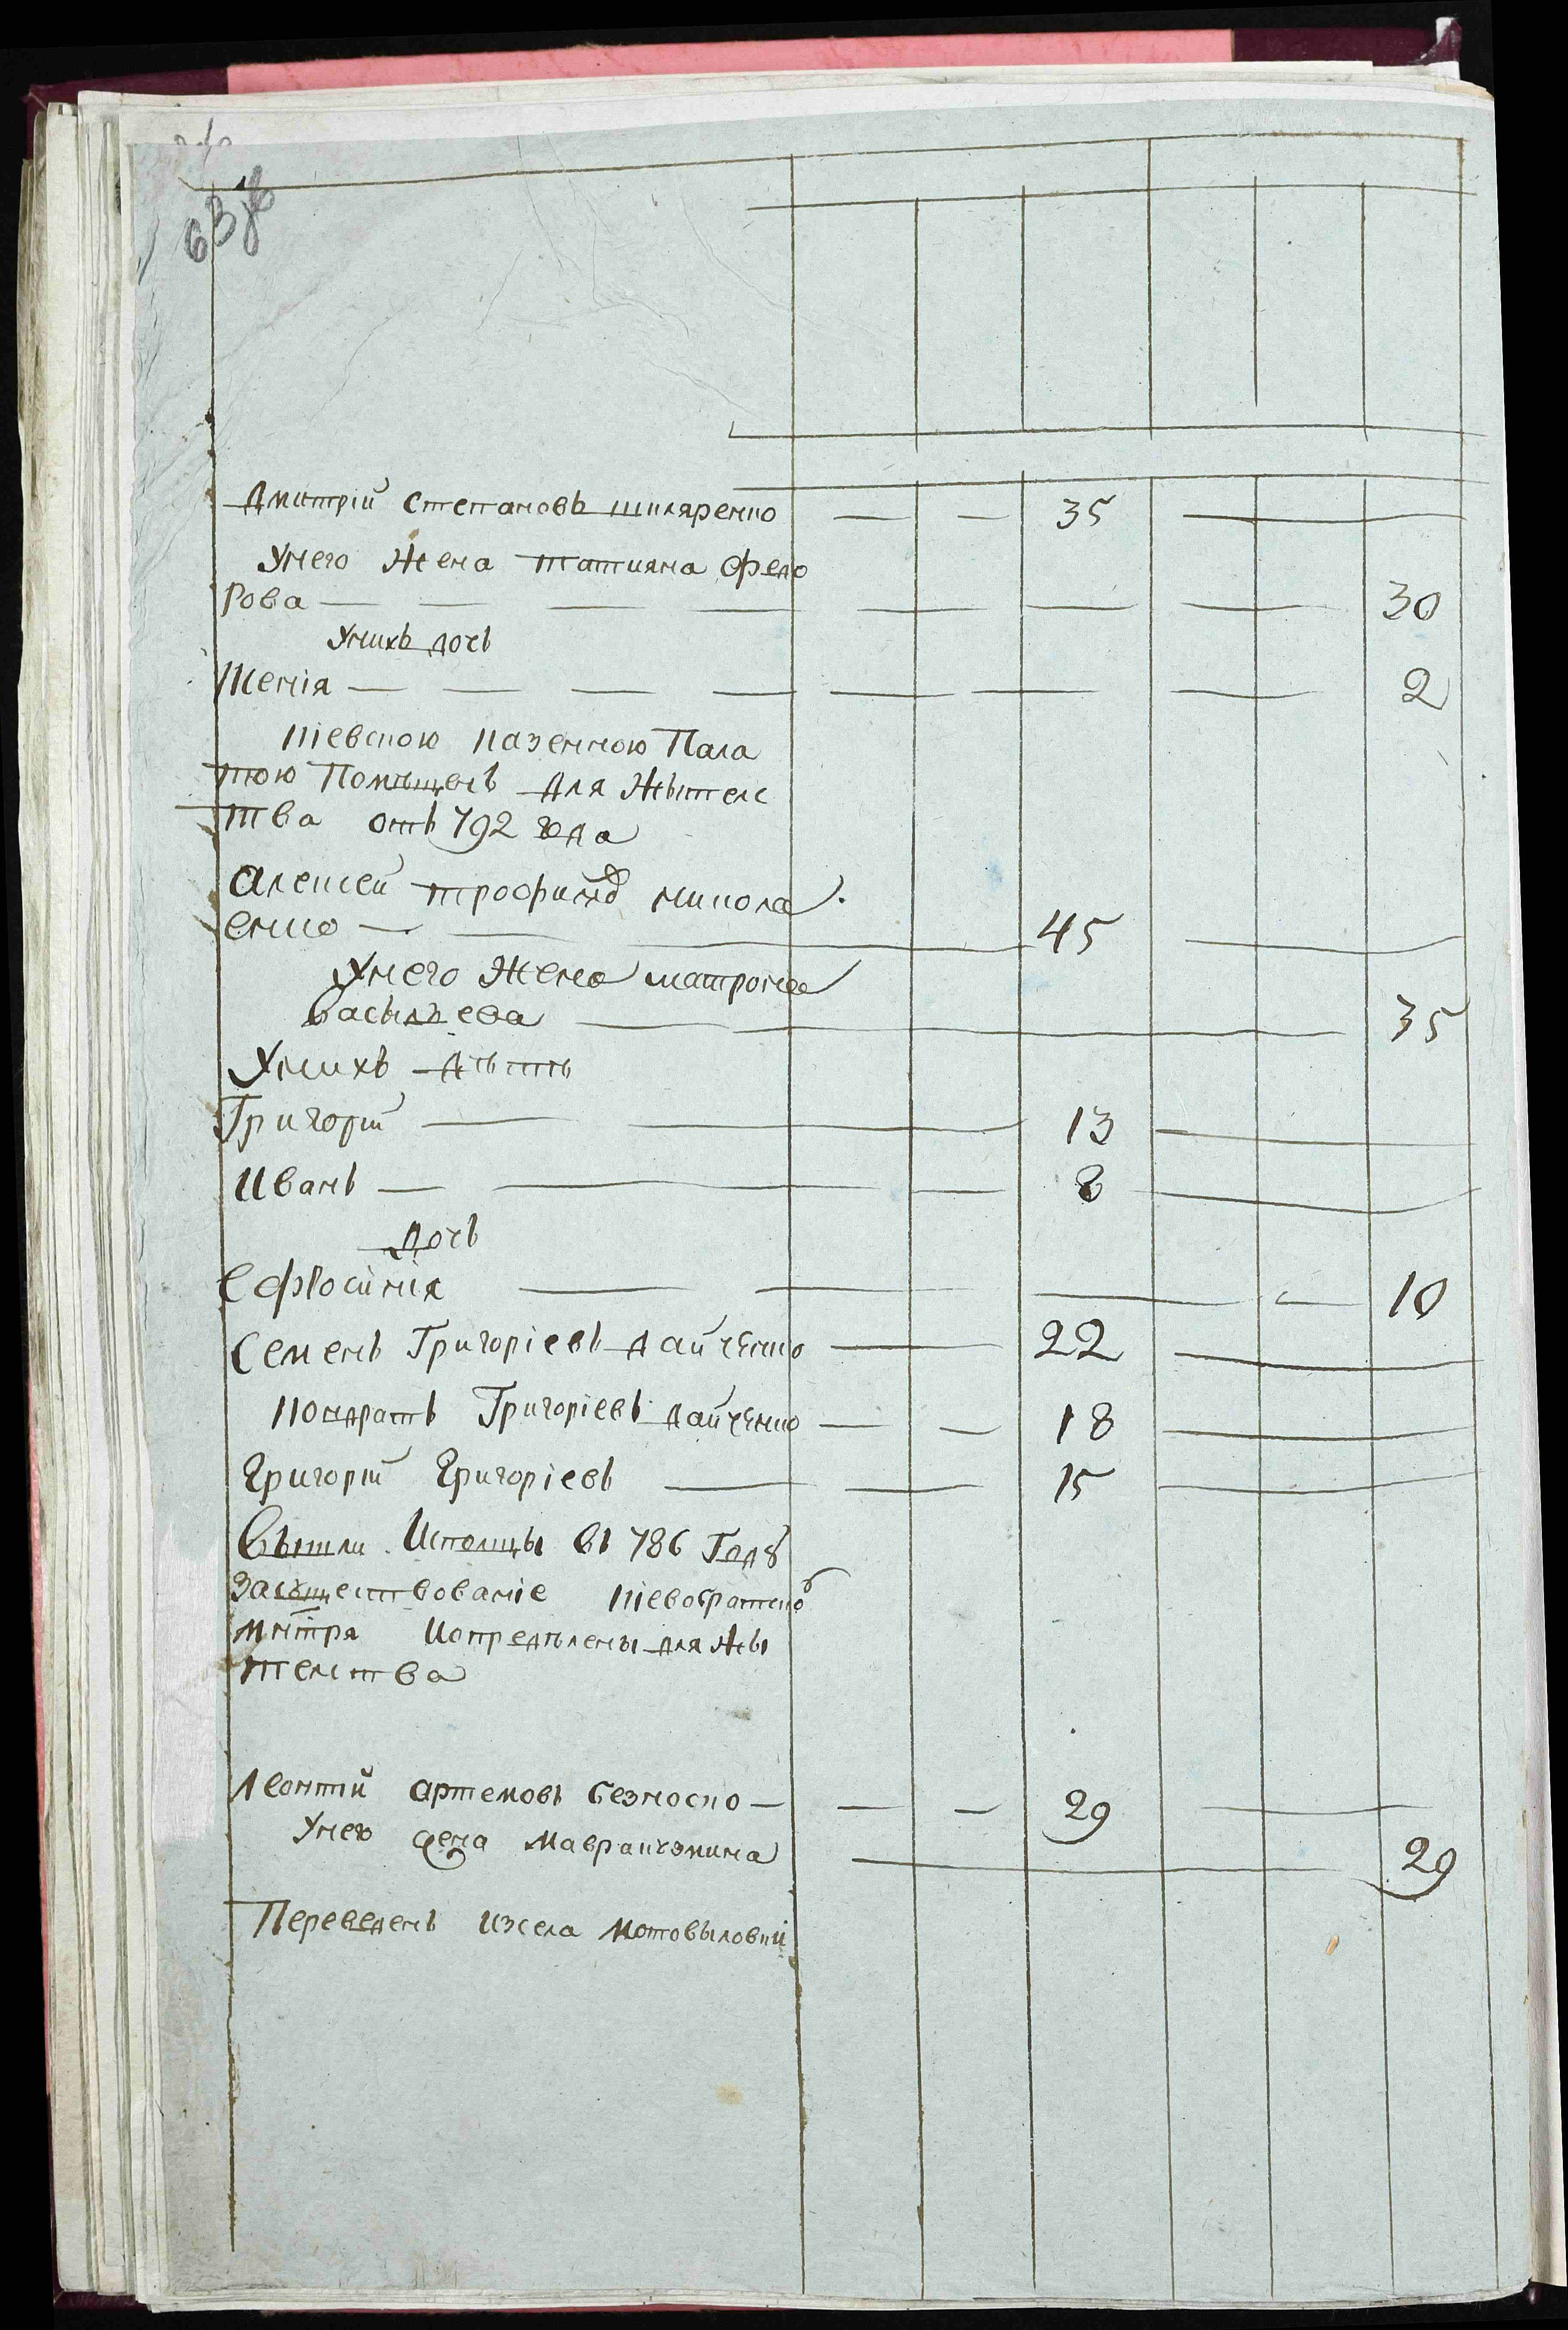 63 об
Дмитрій Степановъ шкляренко — — 35 —
Унего жена татияна федо
рова — — — — — — — — 30
Унихъ дочь
Ксенія — — — — — — — 2
Кіевскою казенною Пала
тою Помѣщенъ для жытелс
тва отъ 792 года
Алексей трофимовъ никола
енко — — 45 —
Унего жена матрона
васылъева — — 35
Унихъ дѣтѣ
Григорій — — 13 —
Иванъ — — — 8 —
дочь
Ефросинія — — — — 10
Семенъ Григоріевъ дайченко — 22 —
Кондратъ Григоріевъ дайченко — — 18 —
Григорій Григоріевъ — — 15 —
Вышли Исполщы въ 786 Годѣ
засуществованіе Кіевобратско
мнтря Иопредѣлены для жы
телства
Леонтій артемовъ безноско — — — 29 —
Унего жена Мавра — 29
Переведенъ изсела Мотовыловки